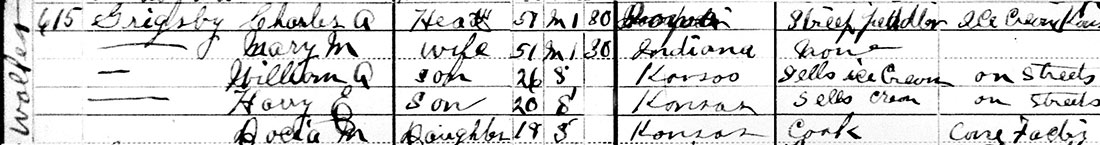 615 Grigsby Charles A Head 51 M 1 30 Street peddler Ice Cream
— Mary M wife 51 M 1 30 Indiana None
— William A Son 26 S Kansas Sells ice Cream on Streets
— Harry E Son 20 S Kansas Sells Cream on Streets
M Daughter 18 S Kansas Cook Cone